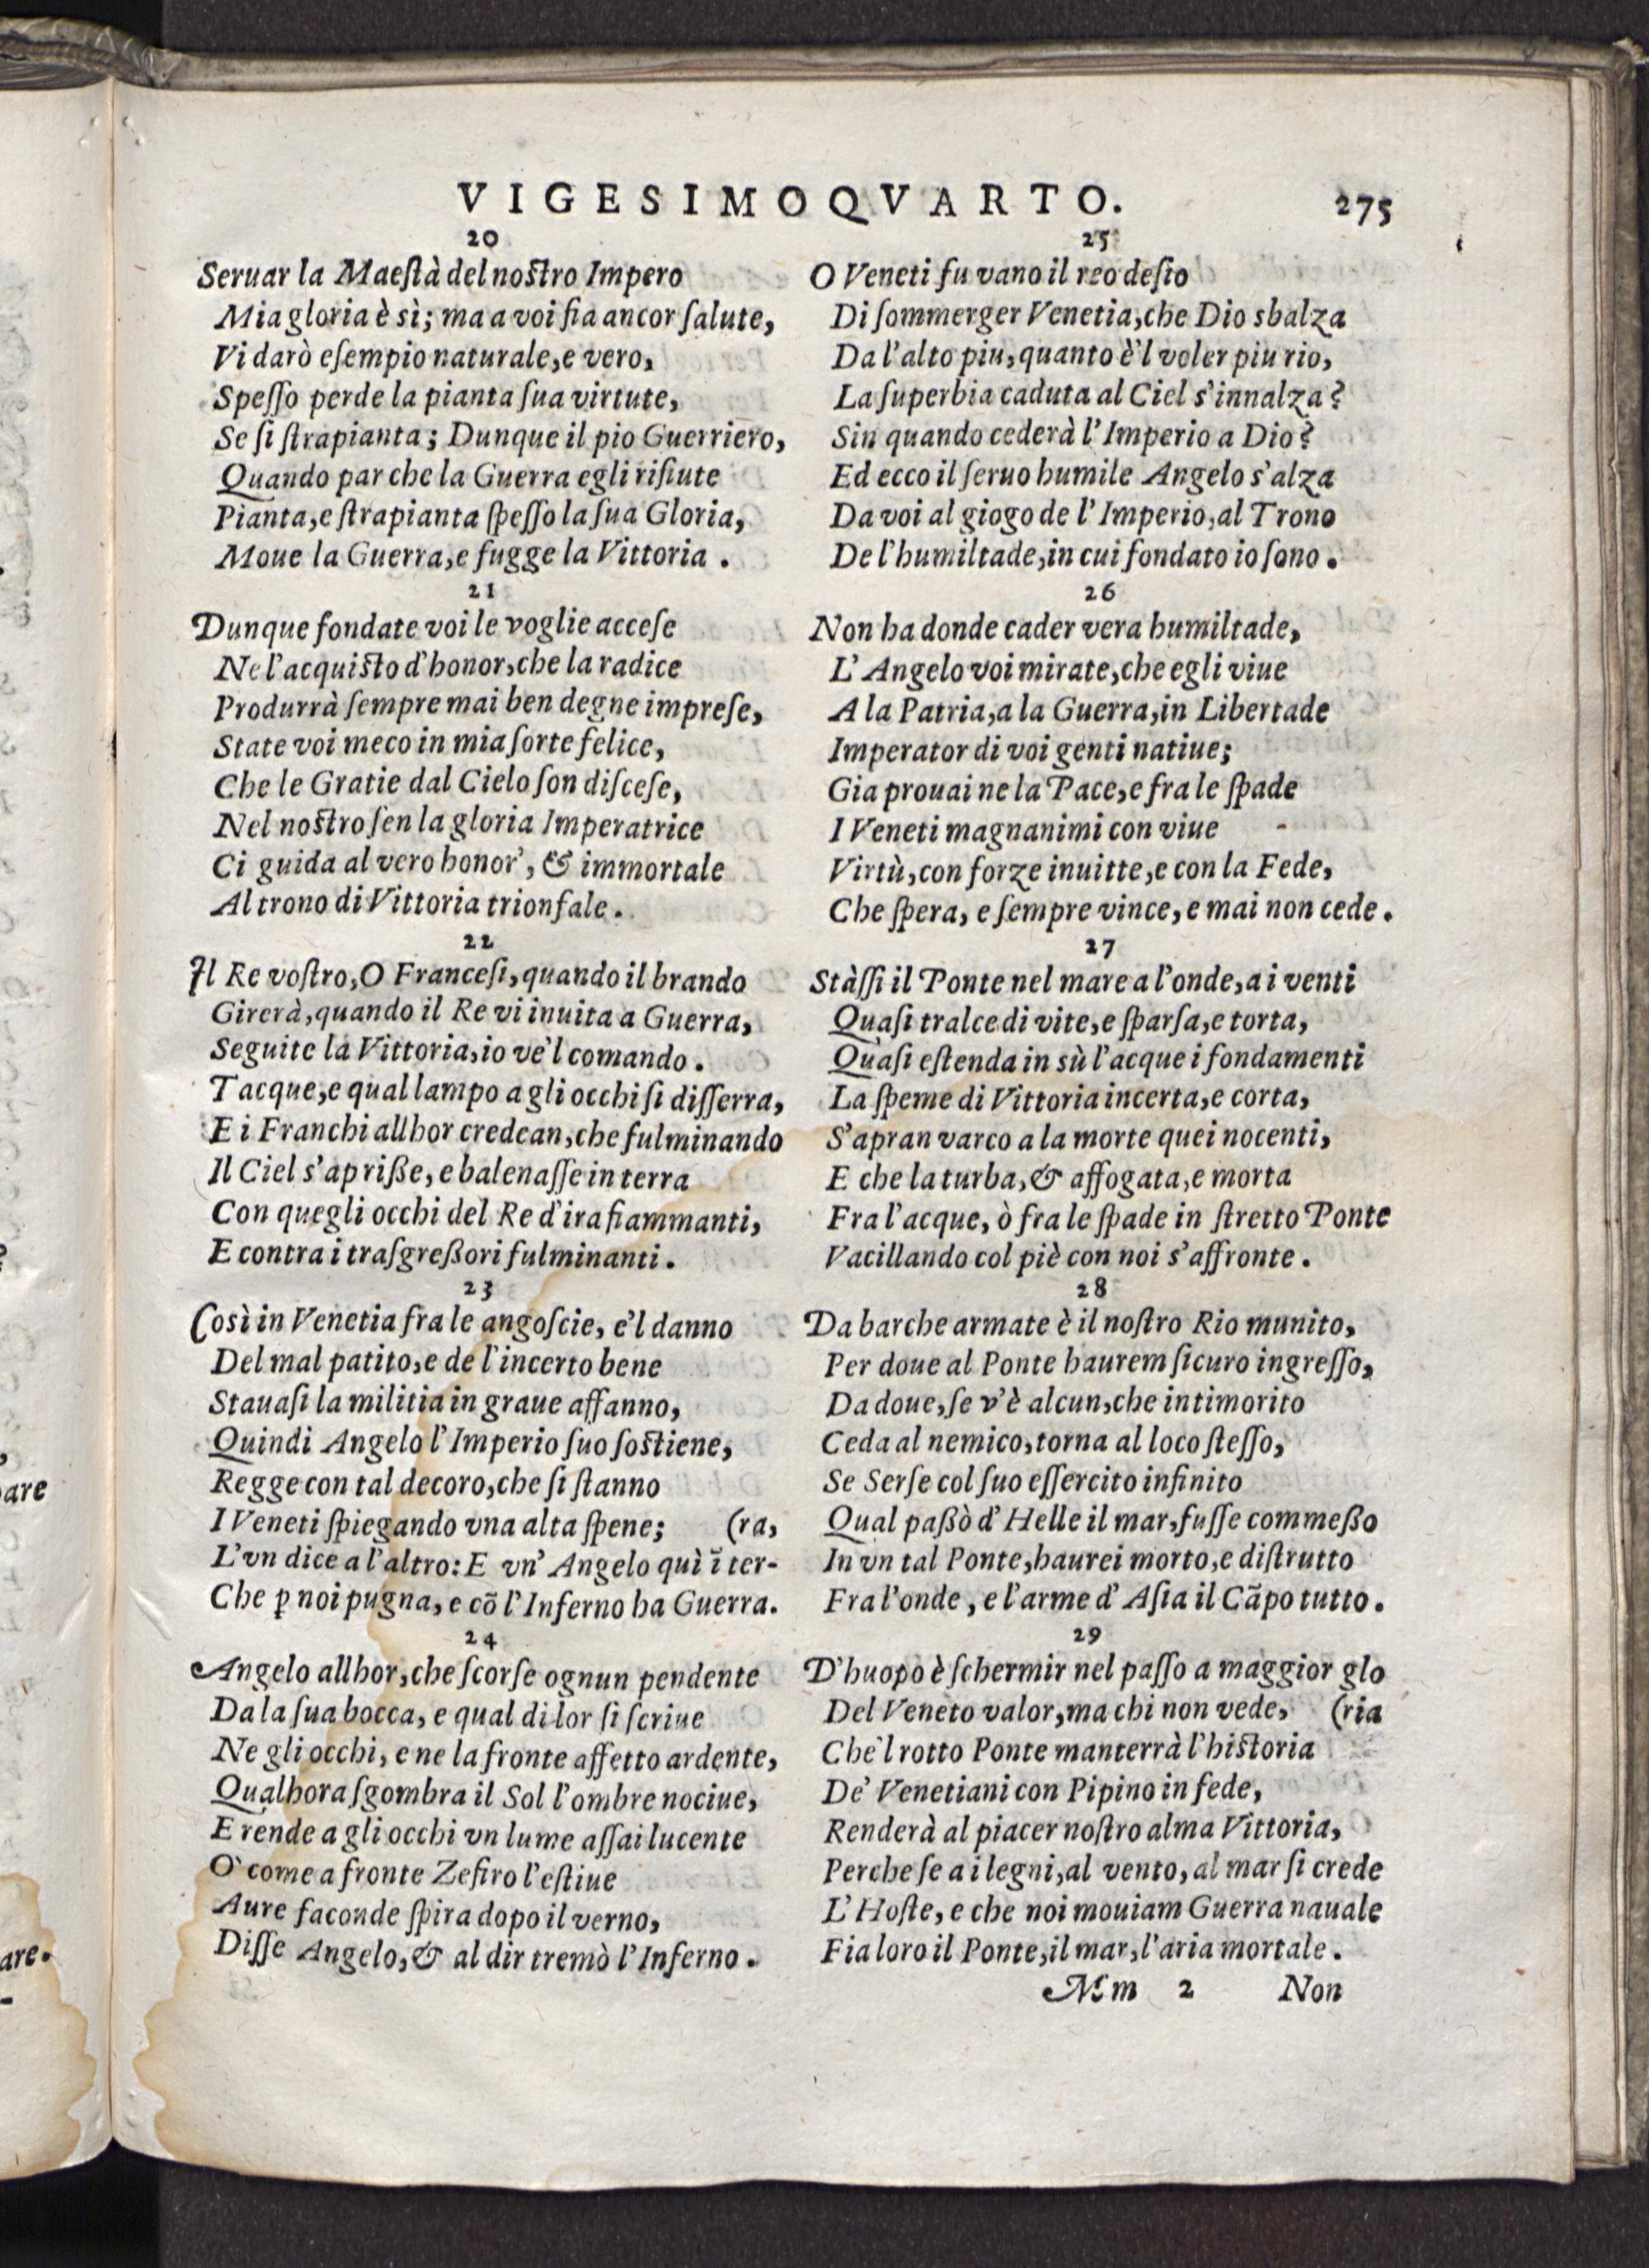 VIGESIMOQVARTO. 275
20
Seruar la Maeſtà del noſtro Impero
Mia gloria è sì; ma a voi ſia ancor ſalute,
Vi darò eſempio naturale, e vero,
Speſſo perde la pianta ſua virtute,
Se ſi ſtrapianta; Dunque il pio Guerriero,
Quando par che la Guerra egli rifiute
Pianta, e ſtrapianta ſpeſſo la ſua Gloria,
Moue la Guerra, e fugge la Vittoria.
21
Dunque fondate voi le voglie acceſe
Ne l'acquiſto d'honor, che la radice
Produrrà ſempre mai ben degne impreſe,
State voi meco in mia ſorte felice,
Che le Gratie dal Cielo ſon diſceſe,
Nel noſtro ſen la gloria Imperatrice
Ci guida al vero honor', & immortale
Al trono di Vittoria trionfale.
22
Il Re voſtro, O Franceſi, quando il brando
Girerà, quando il Re vi inuita a Guerra,
Seguite la Vittoria, io ve'l comando.
Tacque, e qual lampo a gli occhi ſi diſſerra,
E i Franchi allhor credean, che fulminando
Il Ciel s'apriße, e balenaſſe in terra
Con quegli occhi del Re d'ira fiammanti,
E contra i traſgreßori fulminanti.
23
Così in Venetia fra le angoſcie, e'l danno
Del mal patito, e de l'incerto bene
Stauaſi la militia in graue affanno,
Quindi Angelo l'Imperio ſuo ſoſtiene,
Regge con tal decoro, che ſi ſtanno
I Veneti ſpiegando vna alta ſpene; (ra,
L'vn dice a l'altro: E vn' Angelo quì ĩ ter-
Che ꝑ noi pugna, e cõ l'Inferno ha Guerra.
24
Angelo allhor, che ſcorſe ognun pendente
Da la ſua bocca, e qual di lor ſi ſcriue
Ne gli occhi, e ne la fronte affetto ardente,
Qualhora ſgombra il Sol l'ombre nociue,
E rende a gli occhi vn lume aſſai lucente
O' come a fronte Zefiro l'eſtiue
Aure faconde ſpira dopo il verno,
Diſſe Angelo, & al dir tremò l'Inferno.
25
O Veneti fu vano il reo deſio
Di ſommerger Venetia, che Dio sbalza
Da l'alto piu, quanto è'l voler piu rio,
La ſuperbia caduta al Ciel s'innalza?
Sin quando cederà l'Imperio a Dio?
Ed ecco il ſeruo humile Angelo s'alza
Da voi al giogo de l'Imperio, al Trono
De l'humiltade, in cui fondato io ſono.
26
Non ha donde cader vera humiltade,
L'Angelo voi mirate, che egli viue
A la Patria, a la Guerra, in Libertade
Imperator di voi genti natiue;
Gia prouai ne la Pace, e fra le ſpade
I Veneti magnanimi con viue
Virtù, con forze inuitte, e con la Fede,
Che ſpera, e ſempre vince, e mai non cede.
27
Stàſſi il Ponte nel mare a l'onde, a i venti
Quaſi tralce di vite, e ſparſa, e torta,
Quaſi eſtenda in sù l'acque i fondamenti
La ſpeme di Vittoria incerta, e corta,
S'apran varco a la morte quei nocenti,
E che la turba, & affogata, e morta
Fra l'acque, ò fra le ſpade in ſtretto Ponte
Vacillando col piè con noi s'affronte.
28
Da barche armate è il noſtro Rio munito,
Per doue al Ponte haurem ſicuro ingreſſo,
Da doue, ſe v'è alcun, che intimorito
Ceda al nemico, torna al loco ſteſſo,
Se Serſe col ſuo eſſercito infinito
Qual paßò d'Helle il mar, fuſſe commeßo
In vn tal Ponte, haurei morto, e diſtrutto
Fra l'onde, e l'arme d'Aſia il Cãpo tutto.
29
D'huopo è ſchermir nel paſſo a maggior glo
Del Veneto valor, ma chi non vede, (ria
Che'l rotto Ponte manterrà l'hiſtoria
De' Venetiani con Pipino in fede,
Renderà al piacer noſtro alma Vittoria,
Perche ſe a i legni, al vento, al mar ſi crede
L'Hoſte, e che noi mouiam Guerra nauale
Fia loro il Ponte, il mar, l'aria mortale.
Mm 2 Non